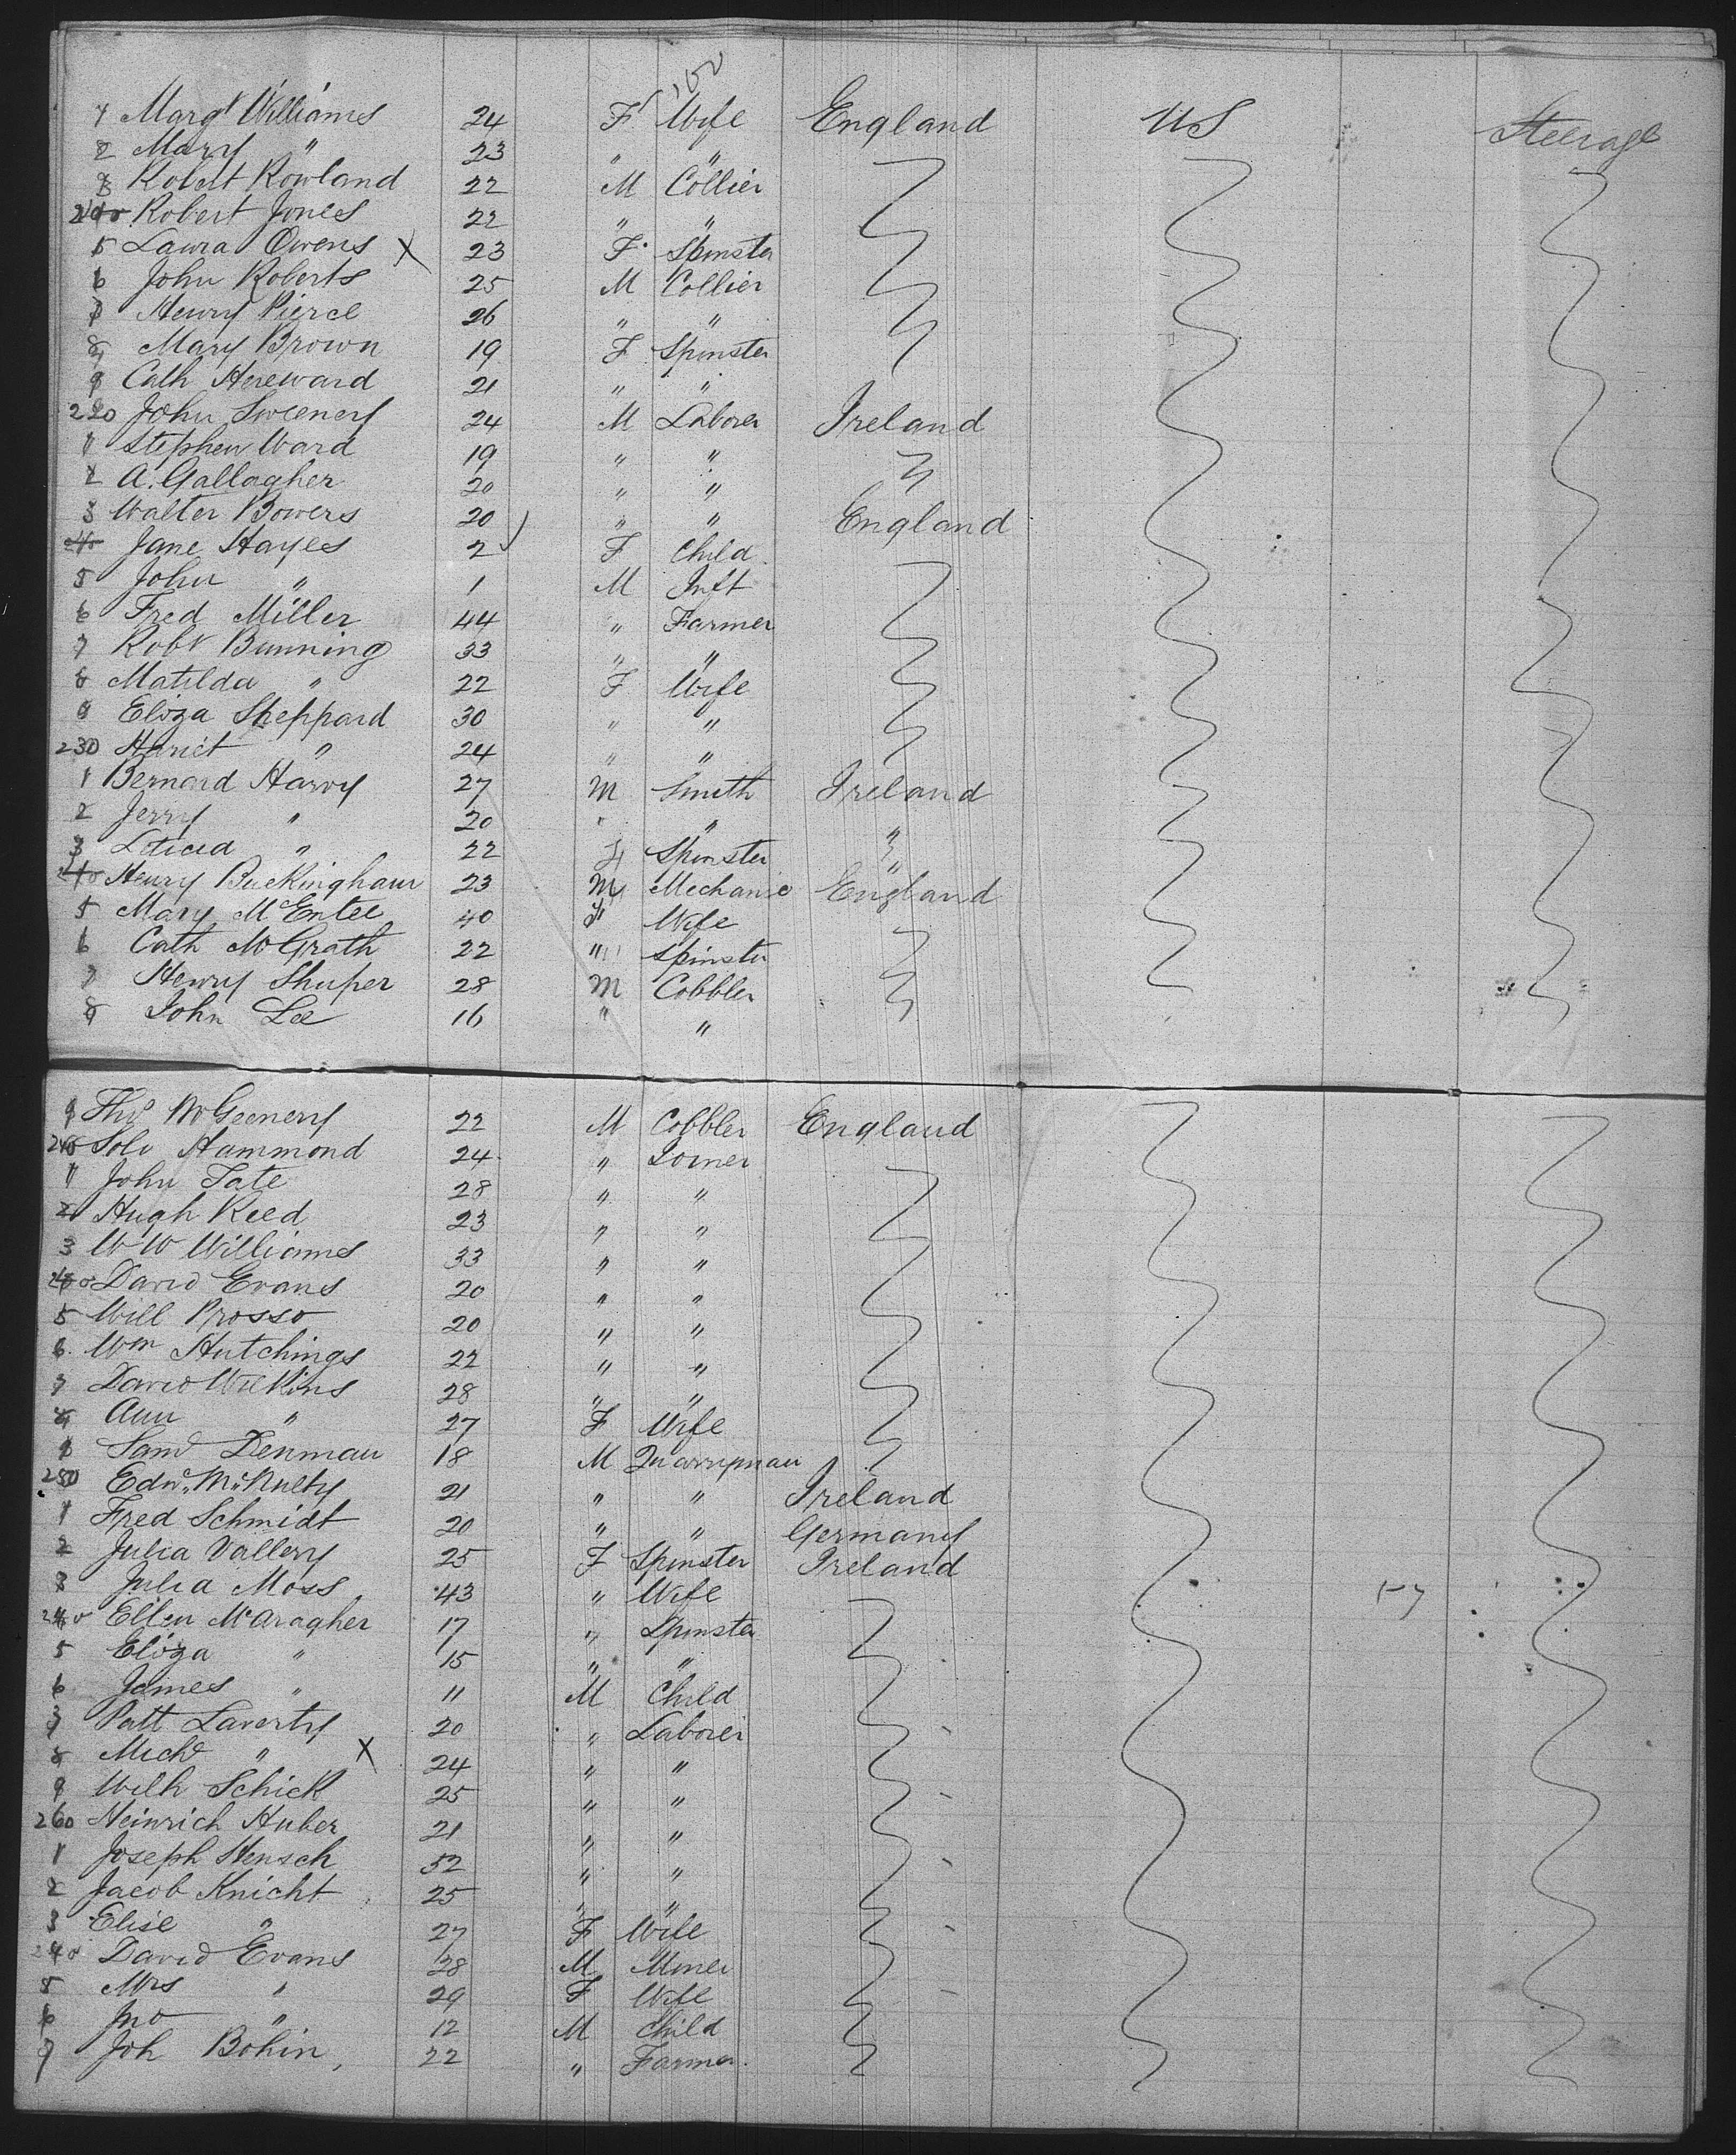 1 Margt Williams 24 F Wife England US Steerage
2 Mary " 23 " "
3 Robert Rowland 22 M Collier
Robert Jones 22 " "
5 Laura Owens X 23 F Spinster
6 John Roberts 25 M Collier
7 Henry Pierce 26 " "
8 Mary Brown 19 F Spinster
9 Cath Hereward 21 " "
220 John Sweeney 24 M Laborer Ireland
1 Stephen Ward 19 " "
2 A. Gallagher 20 " "
3 Walter Bowers 20 " " England
4 Jane Hayes 2 F Child
5 John " 1 M Inft
6 Fred Miller 44 " Farmer
7 Robt Bunning 33 " "
8 Matilda " 22 F Wife
9 Eliza Sheppard 30 " "
230 Hariet " 24 " "
1 Bernard Harvy 27 M Smith Ireland
2 Jerry " 20 " " "
3 Leticia " 22 F Spinster "
Henry Buckingham 23 M Mechanic England
5 Mary McEntee 40 F Wife
6 Cath McGrath 22 " Spinster
7 Henry Shuper 28 M Cobbler
8 John Lee 16 " "
9 Thos McGeenery 22 M Cobbler England
240 Solo Hammond 24 " Joiner
1 John Tate 28 " "
2 Hugh Reed 23 " "
3 W W Williams 33 " "
David Evans 20 " "
5 Will Prosso 20 " "
6 Wm Hutchings 22 " "
7 David Wilkins 28 " "
8 Ann " 27 F Wife
9 Saml Denman 18 M Quarryman
250 Edw. McNulty 21 " " Ireland
1 Fred Schmidt 20 " " Germany
2 Julia Vallery 25 F Spinster Ireland
3 Julia Moss 43 " Wife
Ellen McAragher 17 " Spinster
5 Eliza " 15 " "
6 James " 11 M Child
7 Patt Laverty 20 " Laborer
8 Michl " X 24 " "
9 Wilh Schick 25 " "
260 Heinrich Huber 21 " "
1 Joseph Hensch 32 " "
2 Jacob Knicht 25 " "
3 Elise " 27 F Wife
David Evans 28 M Miner
5 Mrs " 29 F Wife
6 Jno " 12 M Child
7 Joh Bohin 22 " Farmer